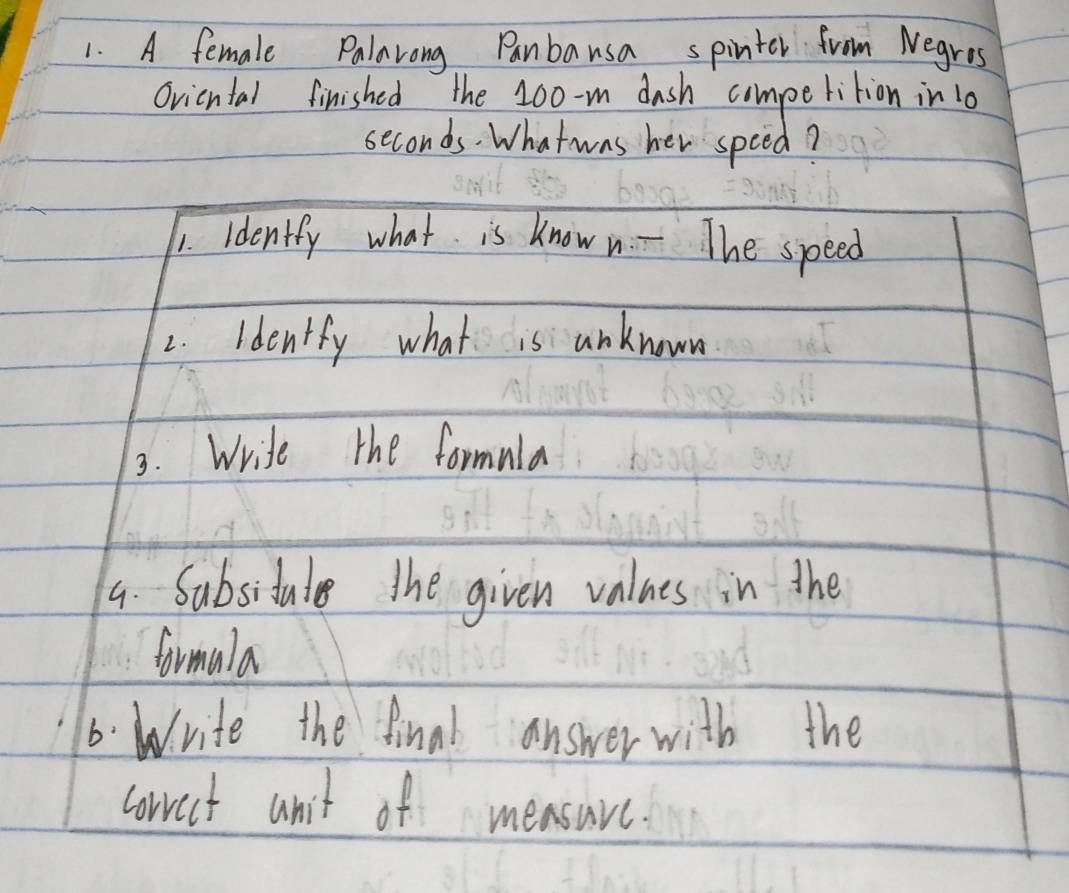 1. A female Palarong Panbansa spinter from Negros
Oriental finished the 100-m dash competition in 10
seconds. What was her speed?
1. Identfy what is known. - The speed
2. Identfy what is unknown
3. Write the formula
4. Subsitute the given values in the
formula
6. Write the final answer with the
correct unit of measure.